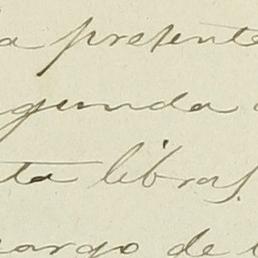 la presente
egunda
ta libras.
cargo de